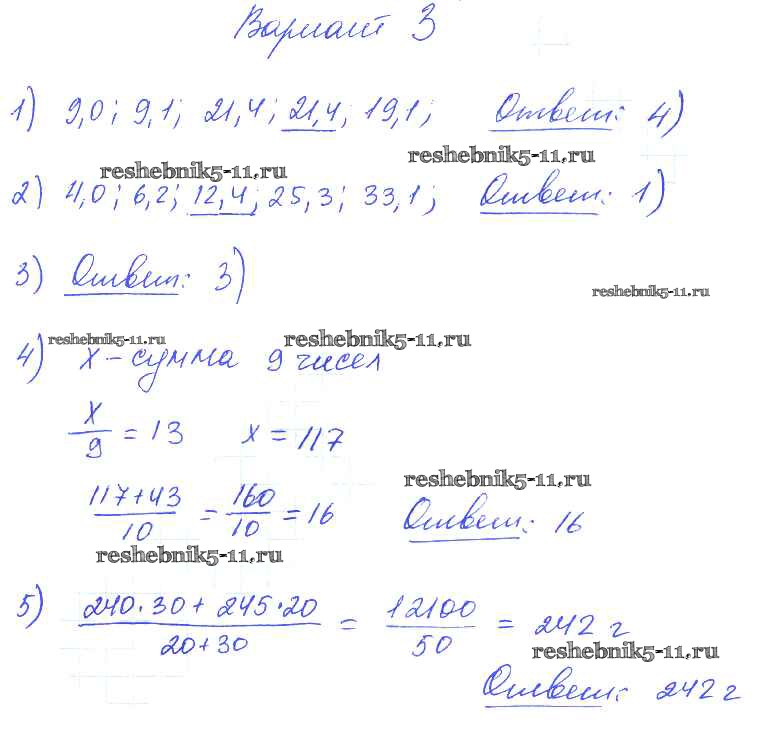 Вариант 3
1) 9,0; 9,1; 21,4; 21,4; 19,1; Ответ: 4)
reshebnik5-11.ru
reshebnik5-11.ru
2) 4,0; 6,2; 12,4; 25,3; 33,1; Ответ: 1)
3) Ответ: 3)
reshebnik5-11.ru
reshebnik5-11.ru
reshebnik5-11.ru
4) x – сумма 9 чисел
x/9 = 13 x = 117
reshebnik5-11.ru
(117+43)/10 = 160/10 = 16 Ответ: 16
reshebnik5-11.ru
5) (240·30 + 245·20)/(20+30) = 12100/50 = 242 г
reshebnik5-11.ru
Ответ: 242 г